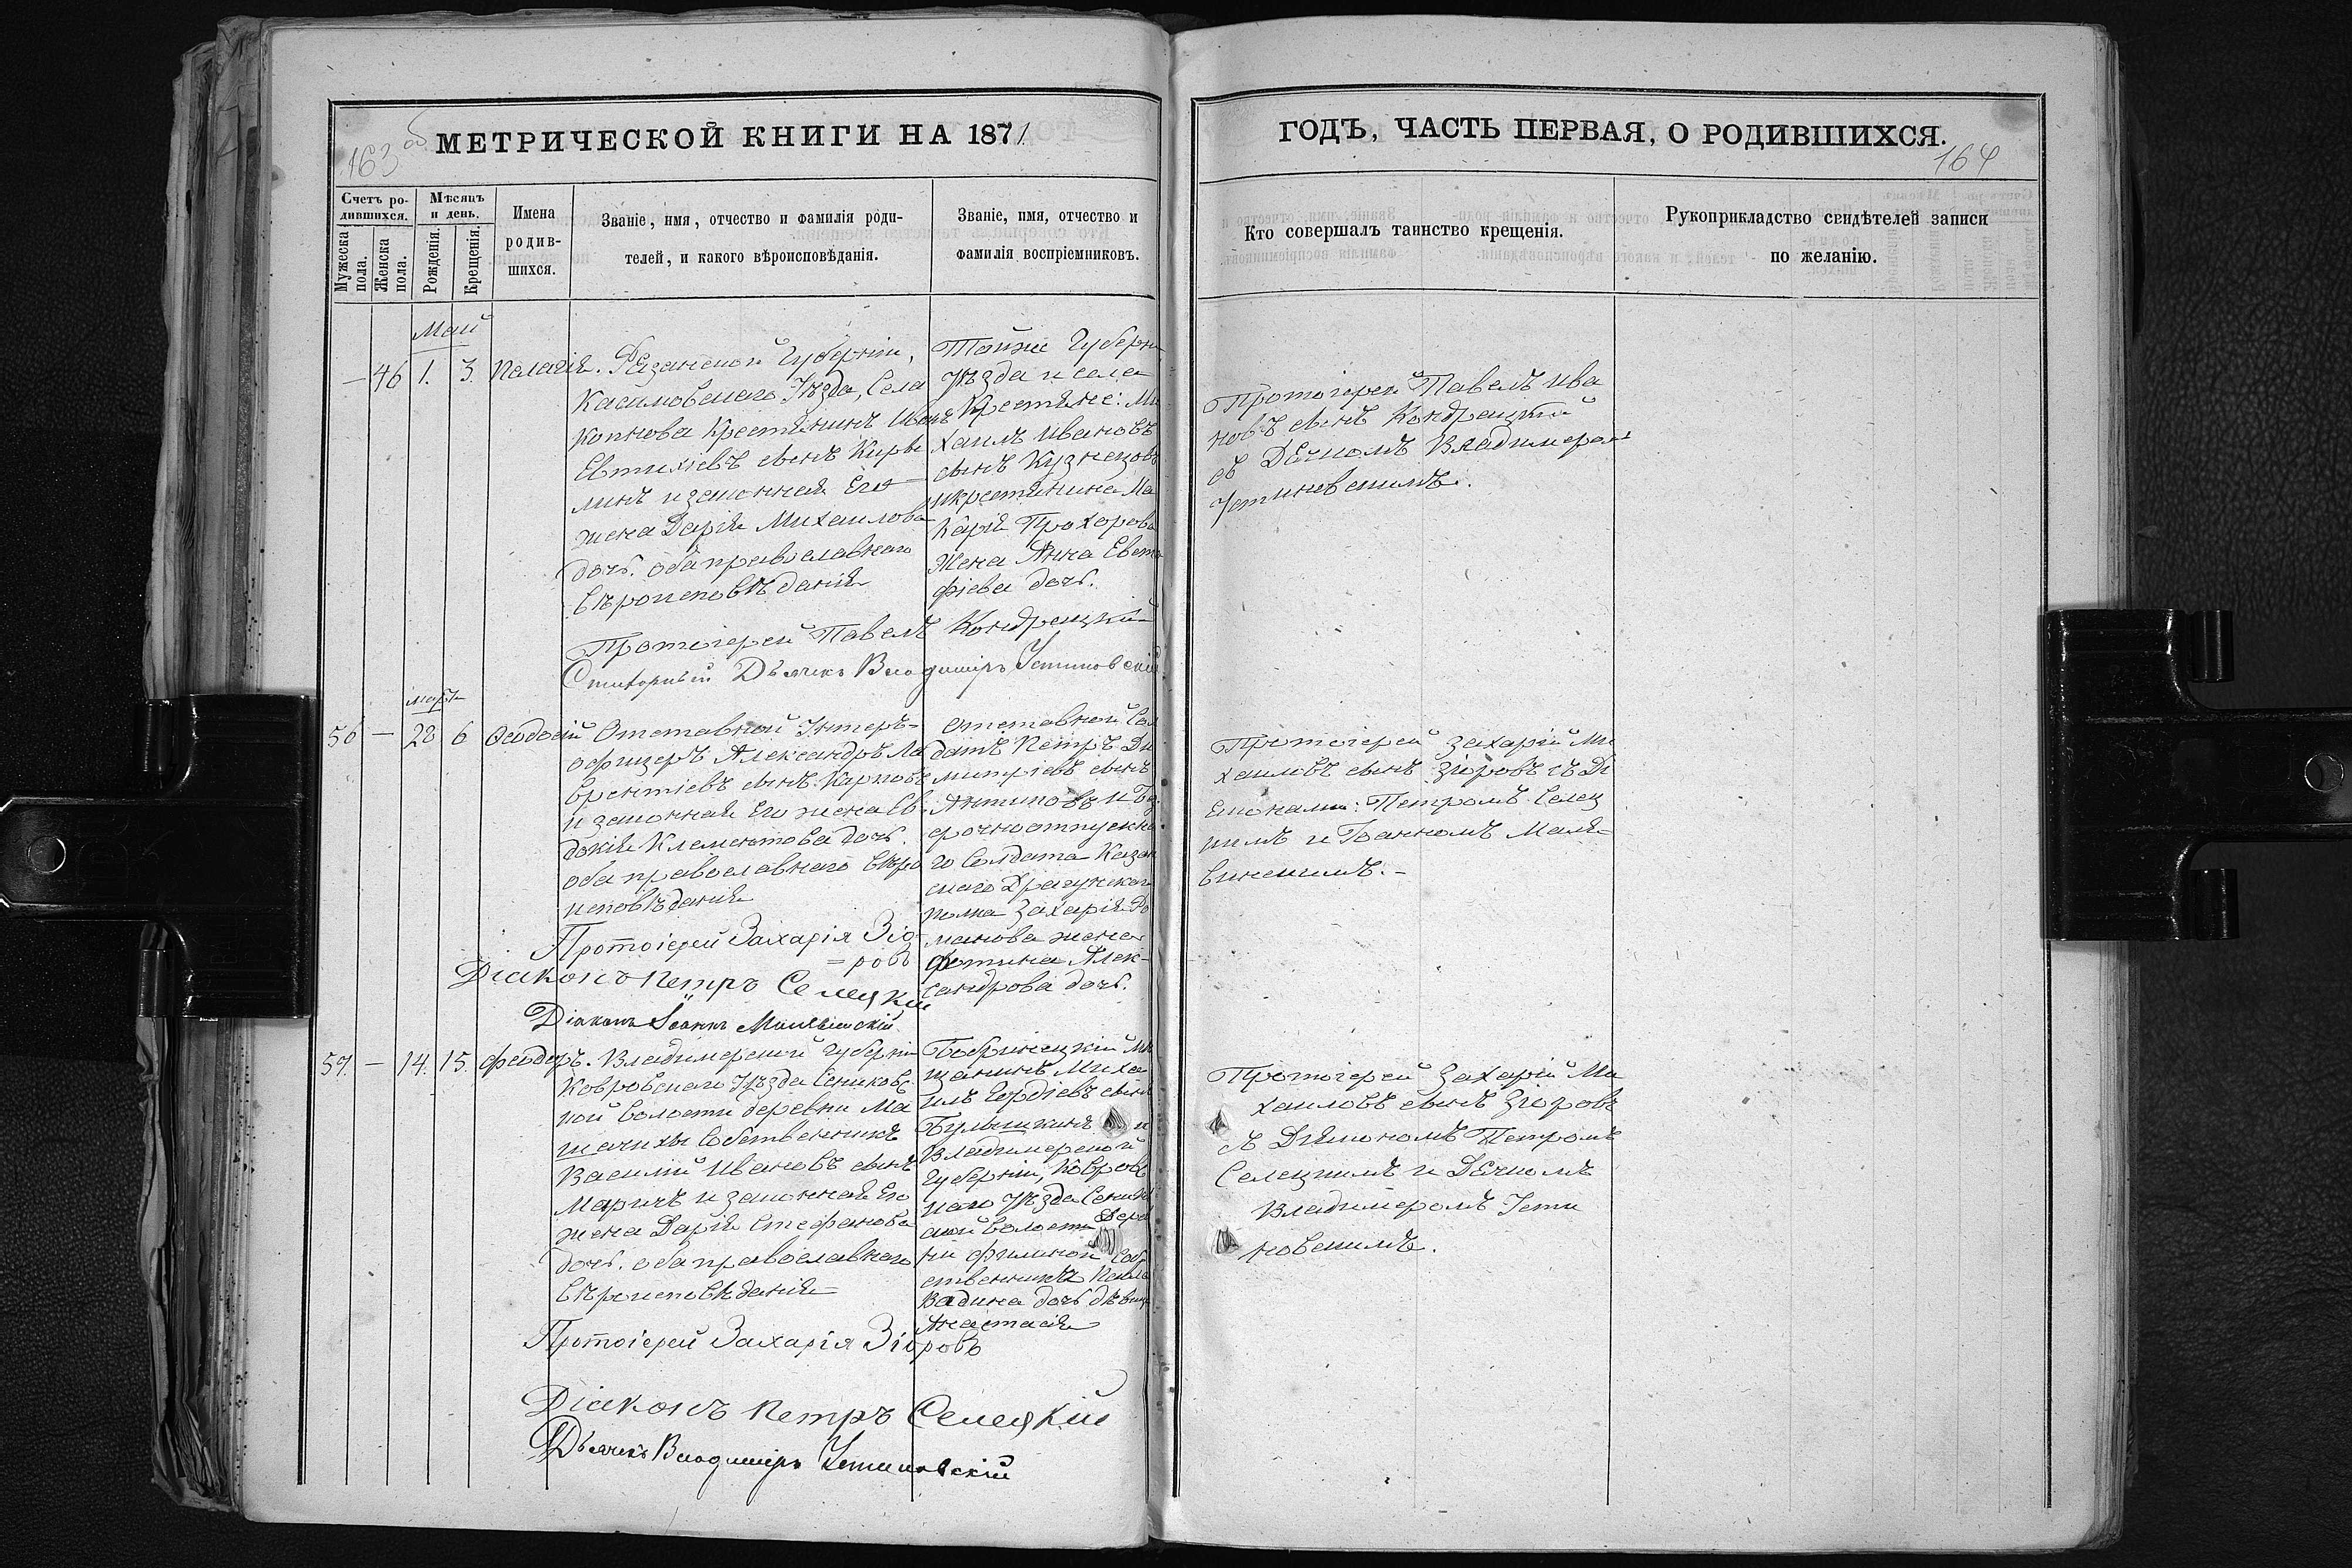 163 об
МЕТРИЧЕСКОЙ КНИГИ НА 1871
ГОДЪ, ЧАСТЬ ПЕРВАЯ, О РОДИВШИХСЯ.
164
Счетъ ро-
дившихся.
Мужеска
пола.
Женска
пола.
Мѣсяцъ
и день.
Рожденія.
Крещенія.
Имена
родив-
шихся.
Званіе, имя, отчество и фамилія роди-
телей, и какого вѣроисповѣданія.
Званіе, имя, отчество и
фамилія воспріемниковъ.
Кто совершалъ таинство крещенія.
Рукоприкладство свидѣтелей записи
по желанію.
Май
— 46 1. 3. Пелагія.
Рязанской Губерніи,
Касимовскаго Уѣзда, Села
Копнова Крестьянинъ Иванъ
Евтихіевъ сынъ Киры
линъ и законная Его
жена Дарія Михаилова
дочь. оба православнаго
вѣроисповѣданія
Тойже Губерн
Уѣзда и села
Крестьяне: Ми
хаилъ Ивановъ
сынъ Кузнецовъ
и крестьянина Ма
карія Прохорова
жена Анна Евста
фіева дочь.
Протоіерей Павелъ Ива
новъ сынъ Кондрацкій
съ Дьячкомъ Владимеромъ
Устиновскимъ.
Протоіерей Павелъ Кондрацкій
Стихарный Дьячекъ Владиміръ Устиновскій
мартъ
56 — 28 6 Ѳеодосій
Отставной Унтеръ-
офицеръ Александръ Ла
врентіевъ сынъ Карповъ
и законная Его жена Ев
докія Клементова дочь.
оба православнаго вѣро
исповѣданія
отставной Сол
датъ Петръ Ди
митріевъ сынъ
Антиповъ и Без
срочноотпускна
го Солдата Казан
скаго Драгунскаго
полка Захарія Ро
манова жена
Фотина Алек-
сандрова дочь.
Протоіерей Захарій Ми
хаиловъ сынъ Зіоровъ съ Ді
аконами: Петромъ Селец
кимъ и Іоанномъ Маля-
винскимъ.-
Протоіерей Захарія Зіо-
=ровъ
Діаконъ Петръ Селецкій
Діаконъ Іоаннъ
57. — 14. 15. Феодоръ.
Владимерской Губерніи
Ковровскаго Уѣзда Сениковс
кой волости деревни Ма
шачихы Собственникъ
Василій Ивановъ сынъ
Маричъ и законная Его
жена Дарія Стефанова
дочь. оба православнаго
вѣроисповѣданія
Бобринецкій мѣ
щанинъ Миха
илъ Гордіевъ сынъ
и
Владимерской
Губерніи, Ковровс
каго Уѣзда
ской волости Дерев
ни Филиной Соб
ственника Павла
Вадина дочь дѣвица
Анастасія
Протоіерей Захарій Ми
хаиловъ сынъ Зіоровъ
съ Діякономъ Петромъ
Селецкимъ и Дьячкомъ
Владимеромъ Усти
новскимъ.
Протоіерей Захарія Зіоровъ
Діаконъ Петръ Селецкій
Дьячекъ Владиміръ Устиновскій